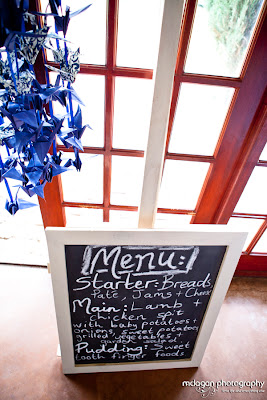 Menu:
Starter: Breads
Pate, Jams + Cheese
Main: Lamb +
chicken spit
with baby potatoes +
onions, sweet potatoes
grilled vegetables +
garden salad
Pudding: Sweet
tooth finger foods
mclagan photography